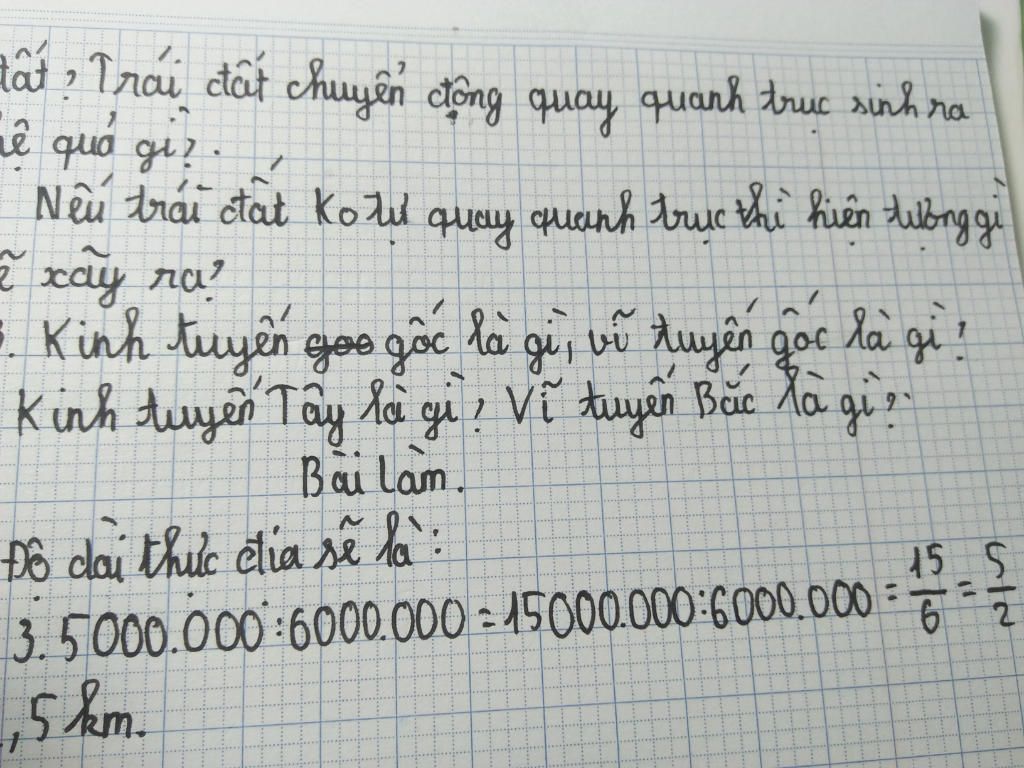 đất, Trái đất chuyển động quay quanh trục sinh ra
hệ quả gì?.
Nếu trái đất Ko tự quay quanh trục thì hiện tượng gì
sẽ xãy ra?
3. Kinh tuyến gốc là gì, vĩ tuyến gốc là gì?
Kinh tuyến Tây là gì? Vĩ tuyến Bắc là gì?
Bài làm.
Độ dài thức địa sẽ là:
3.5000.000:6000.000=15000.000:6000.000 = 15/6 = 5/2
,5 km.